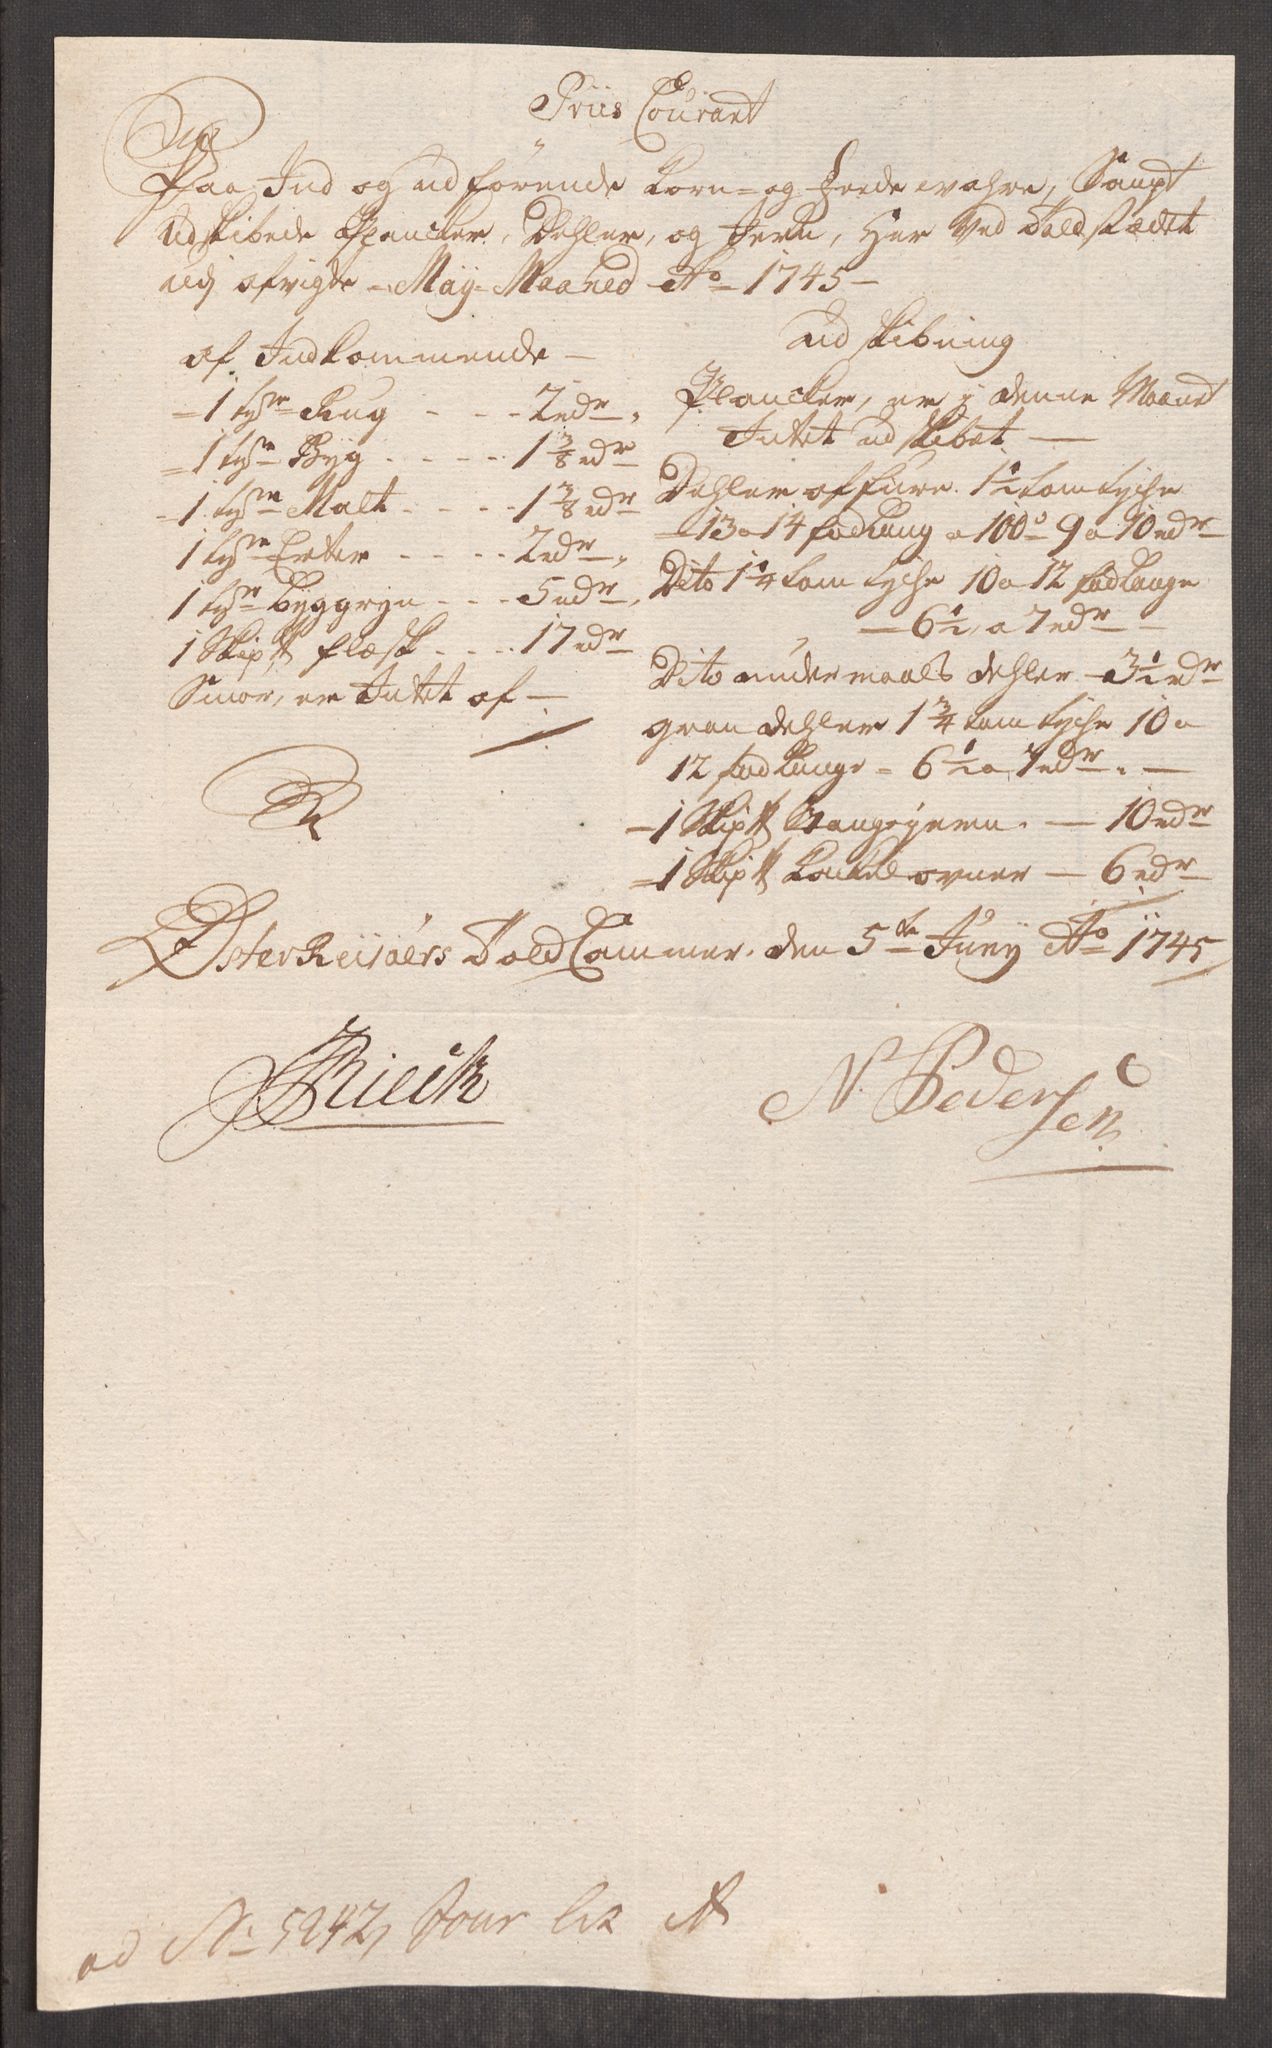 Priis Courant
Paa Ind og udförende Korn= og Fede wahre, Sampt
udskibede Plancker, Dehler, og Jern, Her Ved Toldstædet
udj afvigte May Maaned Ao 1745
af Indkommende
1 tyñe Rug - - - 2 rdr
1 tyñe Byg - - - - 1 3/8 rdr
1 tyñe Malt - - - - 1 3/8 rdr
1 tyñe Erter - - - - 2 rdr
1 tyñe byggryn - - - 5 rdr
1 Skip℔ flæsk - - - - 17 rdr
Smör, er Intet af
Udskibning
Plancker, er j denne Maanet
Intet udskibet
Dehler af fure 1 1/2 tom tyche
13 a 14 fod lang a 100de 9 a 10 rdr
Dito 1 1/4 tom tyche 10 a 12 fod lange
6 1/2 a 7 rdr
Dito undermaals dehler 3 1/2 rdr
gran dehler 1 3/4 tom tyche 10 a
12 fod lange 6 1/2 a 7 rdr
1 Skip℔ Stangejern 10 rdr
1 Skip℔ Kackelovner 6 rdr
ÖsterReisöers Told Cammer den 5te Juny Ao 1745
N. Pedersen
ad No 5242 Jour Lit A